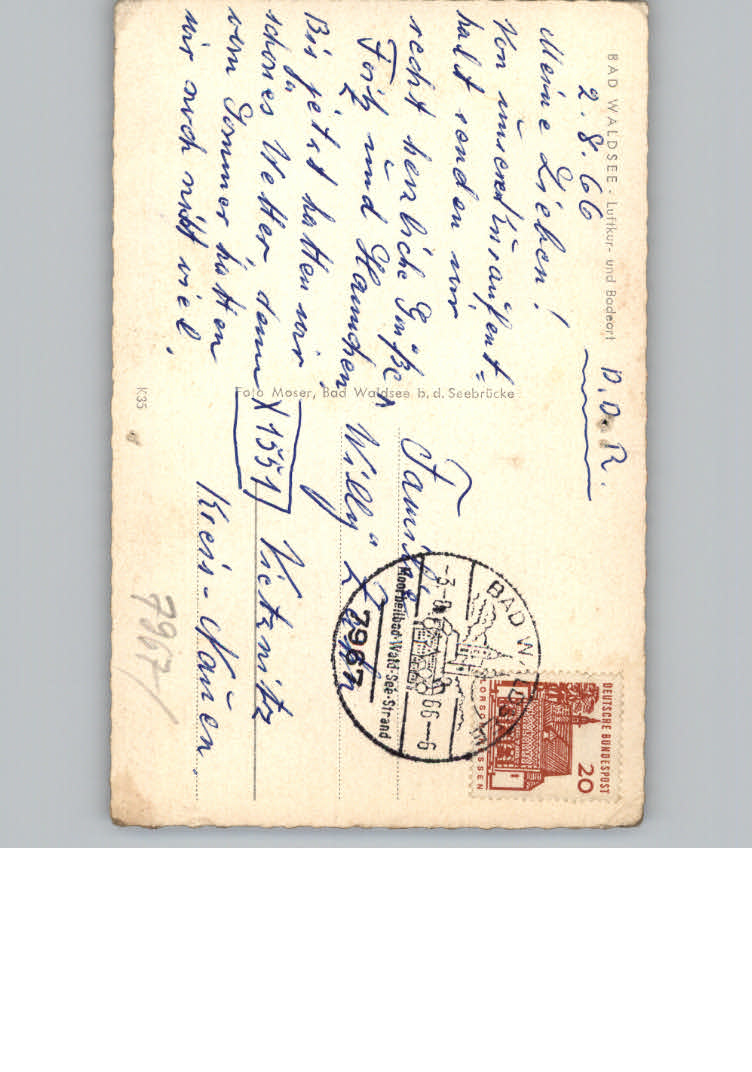 BAD WALDSEE - Luftkur- und Badeort
2.8.66
Meine Lieben!
Von unserem Kuraufent=
halt senden wir
recht herzliche Grüße
Fritz und Hannchen.
Bis jetzt hatten wir
schönes Wetter, denn
vom Sommer hatten
wir noch nicht viel.
Foto Moser, Bad Waldsee b. d. Seebrücke
K35
D.D.R.
Familie
Willy
X 1551 Vietznitz
Kreis-Nauen.
7967
DEUTSCHE BUNDESPOST
20
LORSCH HESSEN
BAD WALDSEE
-3.8.66-6
Moorheilbad-Wald-See-Strand
7967